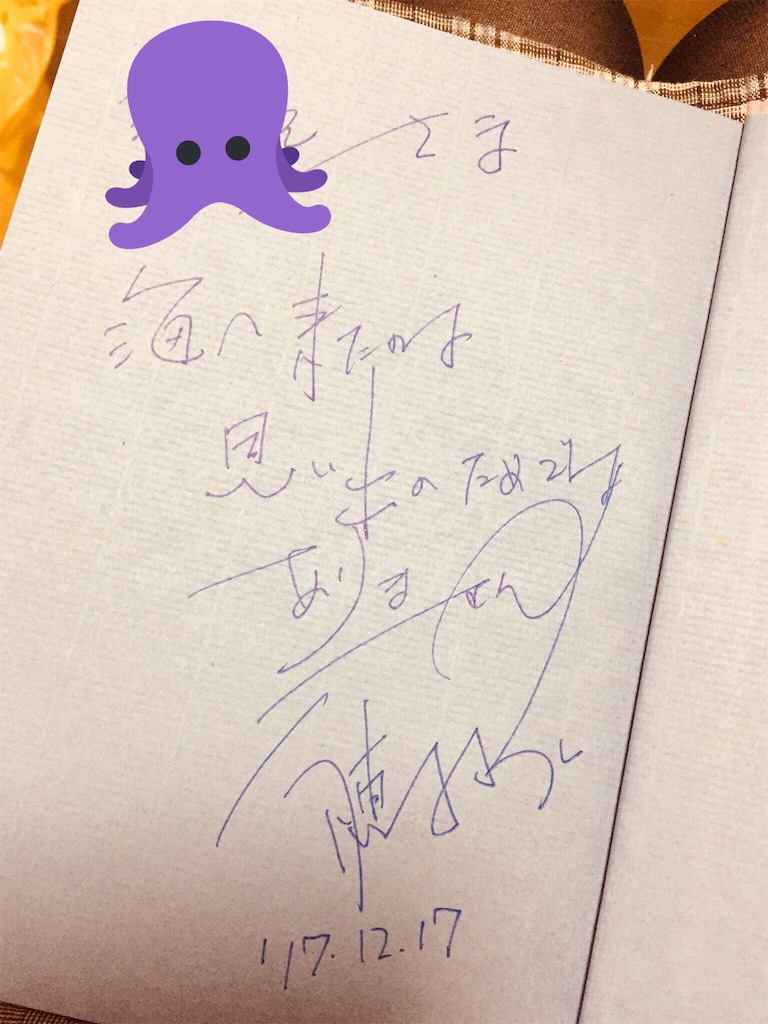 さま
海へ来たのは
思い出のためでは
ありません
'17.12.17